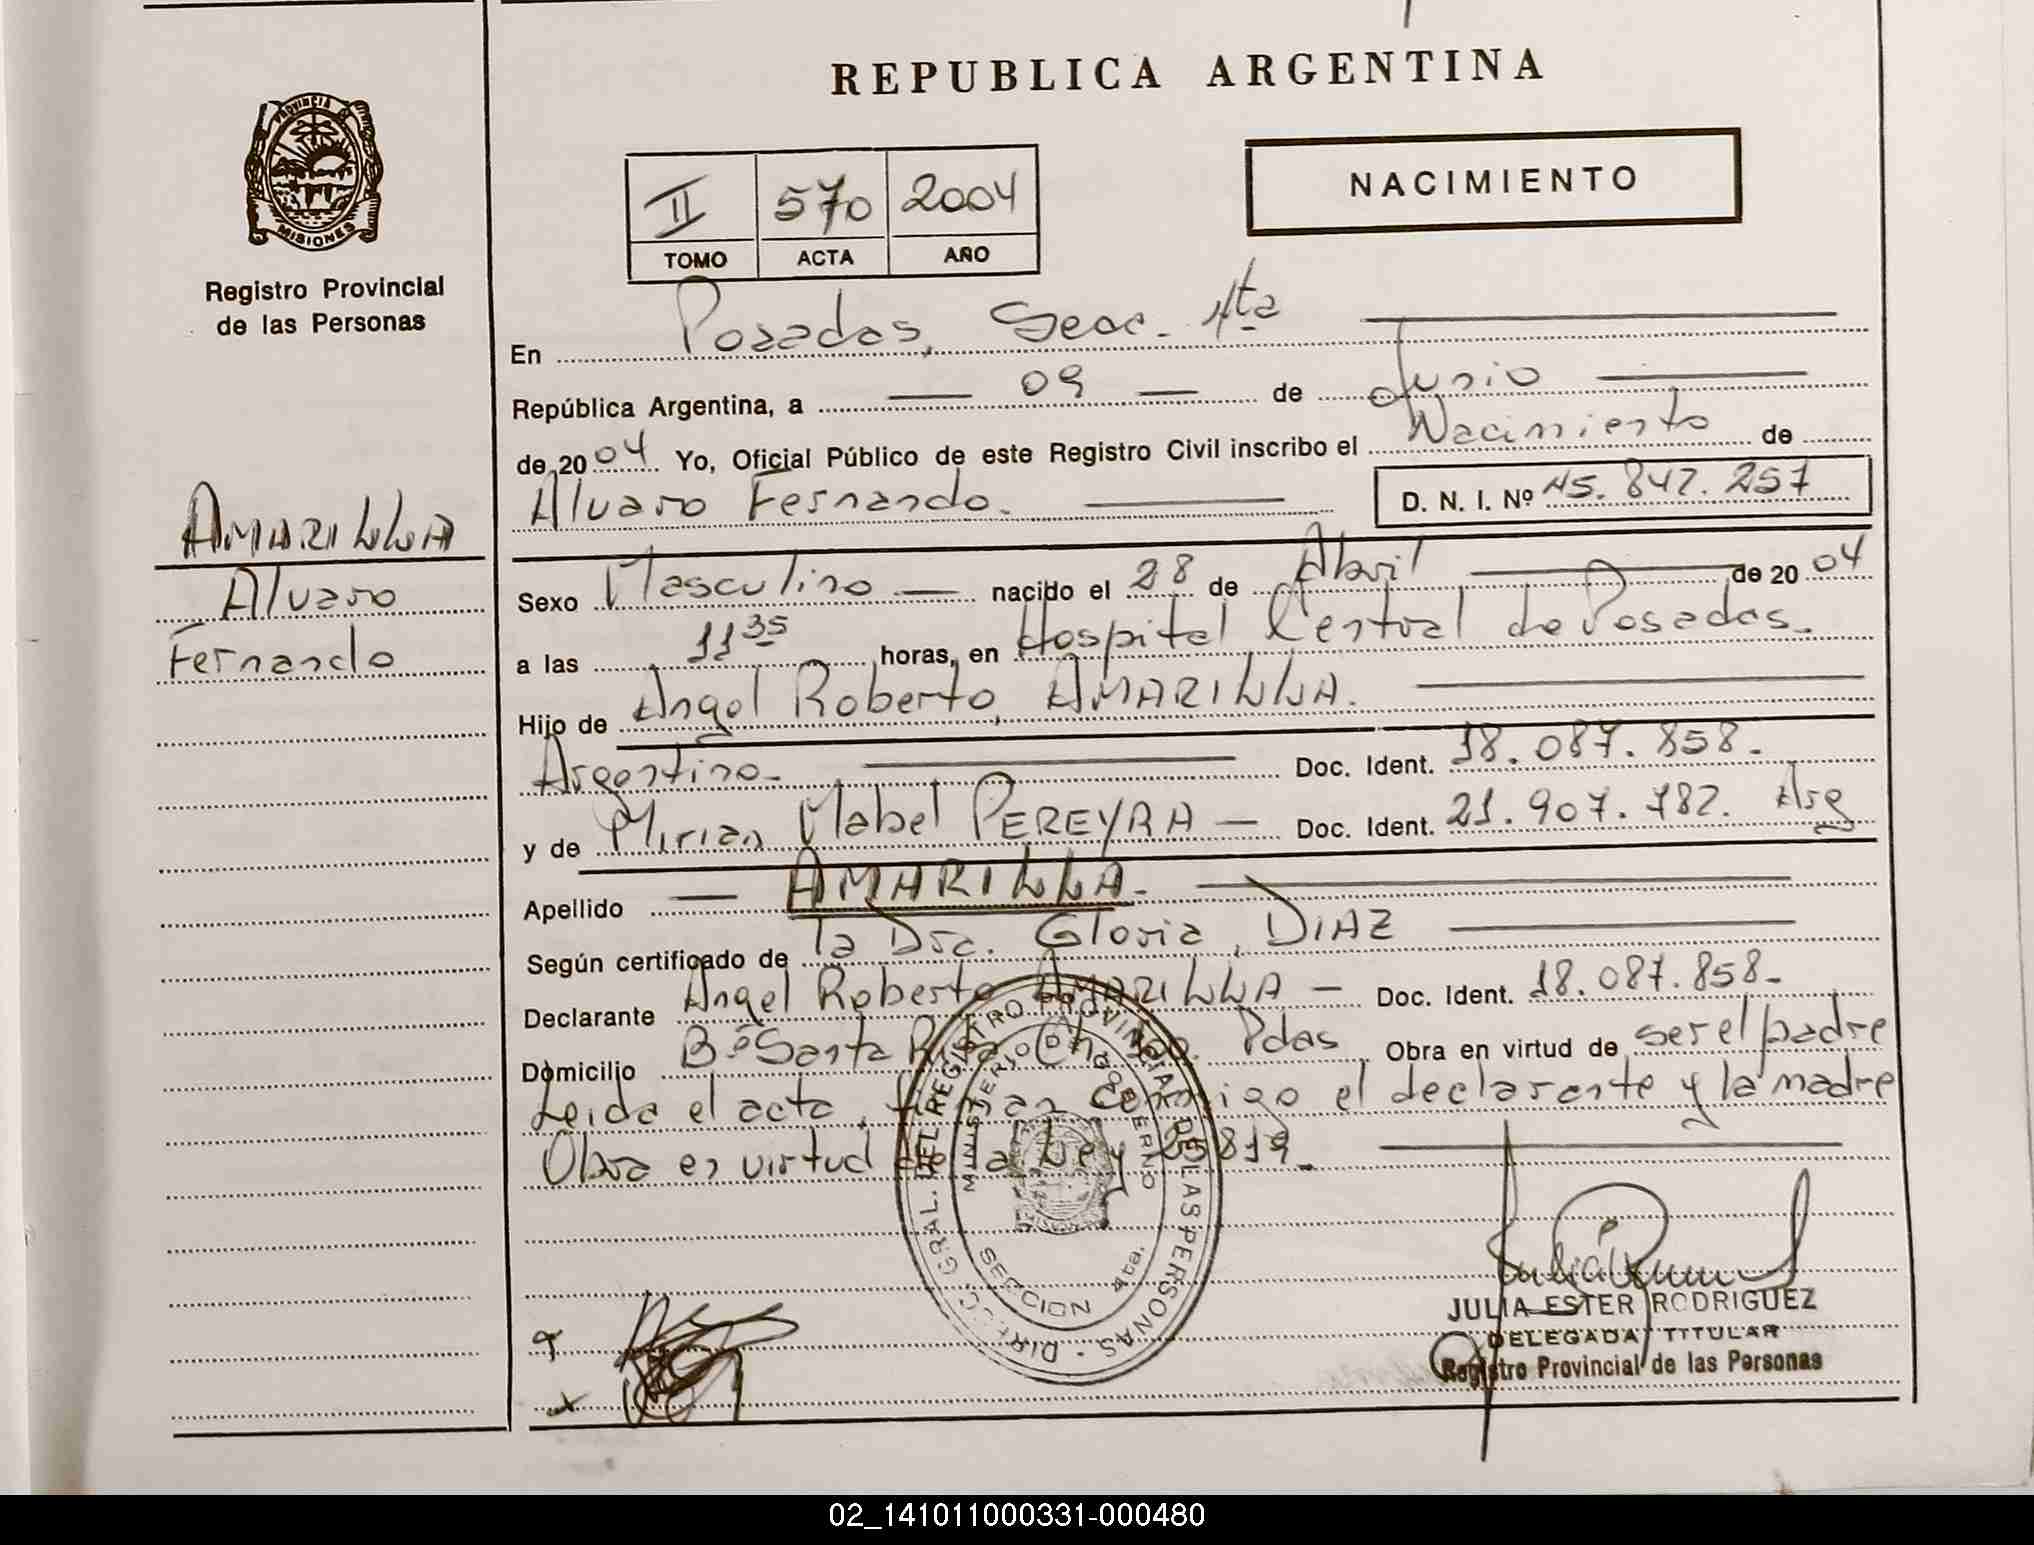 REPUBLICA ARGENTINA
PROVINCIA
MISIONES
Registro Provincial
de las Personas
II 570 2004
TOMO ACTA AÑO
NACIMIENTO
AMARILLA
Alvaro
Fernando
En Posadas, Secc. 4ta
República Argentina, a 09 de Junio
de 2004 Yo, Oficial Público de este Registro Civil inscribo el Nacimiento de
Alvaro Fernando. D. N. I. Nº 45.842.257
Sexo Masculino nacido el 28 de Abril de 2004
a las 11 35 horas, en Hospital Central de Posadas.
Hijo de Angel Roberto AMARILLA.
Argentino- Doc. Ident. 18.087.858.
y de Mirian Mabel PEREYRA - Doc. Ident. 21.907.782. Arg
Apellido AMARILLA.
Según certificado de la Dra. Gloria DIAZ
Declarante Angel Roberto AMARILLA - Doc. Ident. 18.087.858-
Domicilio Bº Santa Rita Pdas Obra en virtud de ser el padre
Leida el acta, firman conmigo el declarante y la madre
Obra en virtud de la Ley 25819.
DIREC. GRAL. DEL REGISTRO PROVINCIAL DE LAS PERSONAS
MINISTERIO DE GOBIERNO
SECCION 4ta.
JULIA ESTER RODRIGUEZ
DELEGADA TITULAR
Registro Provincial de las Personas
02_141011000331-000480